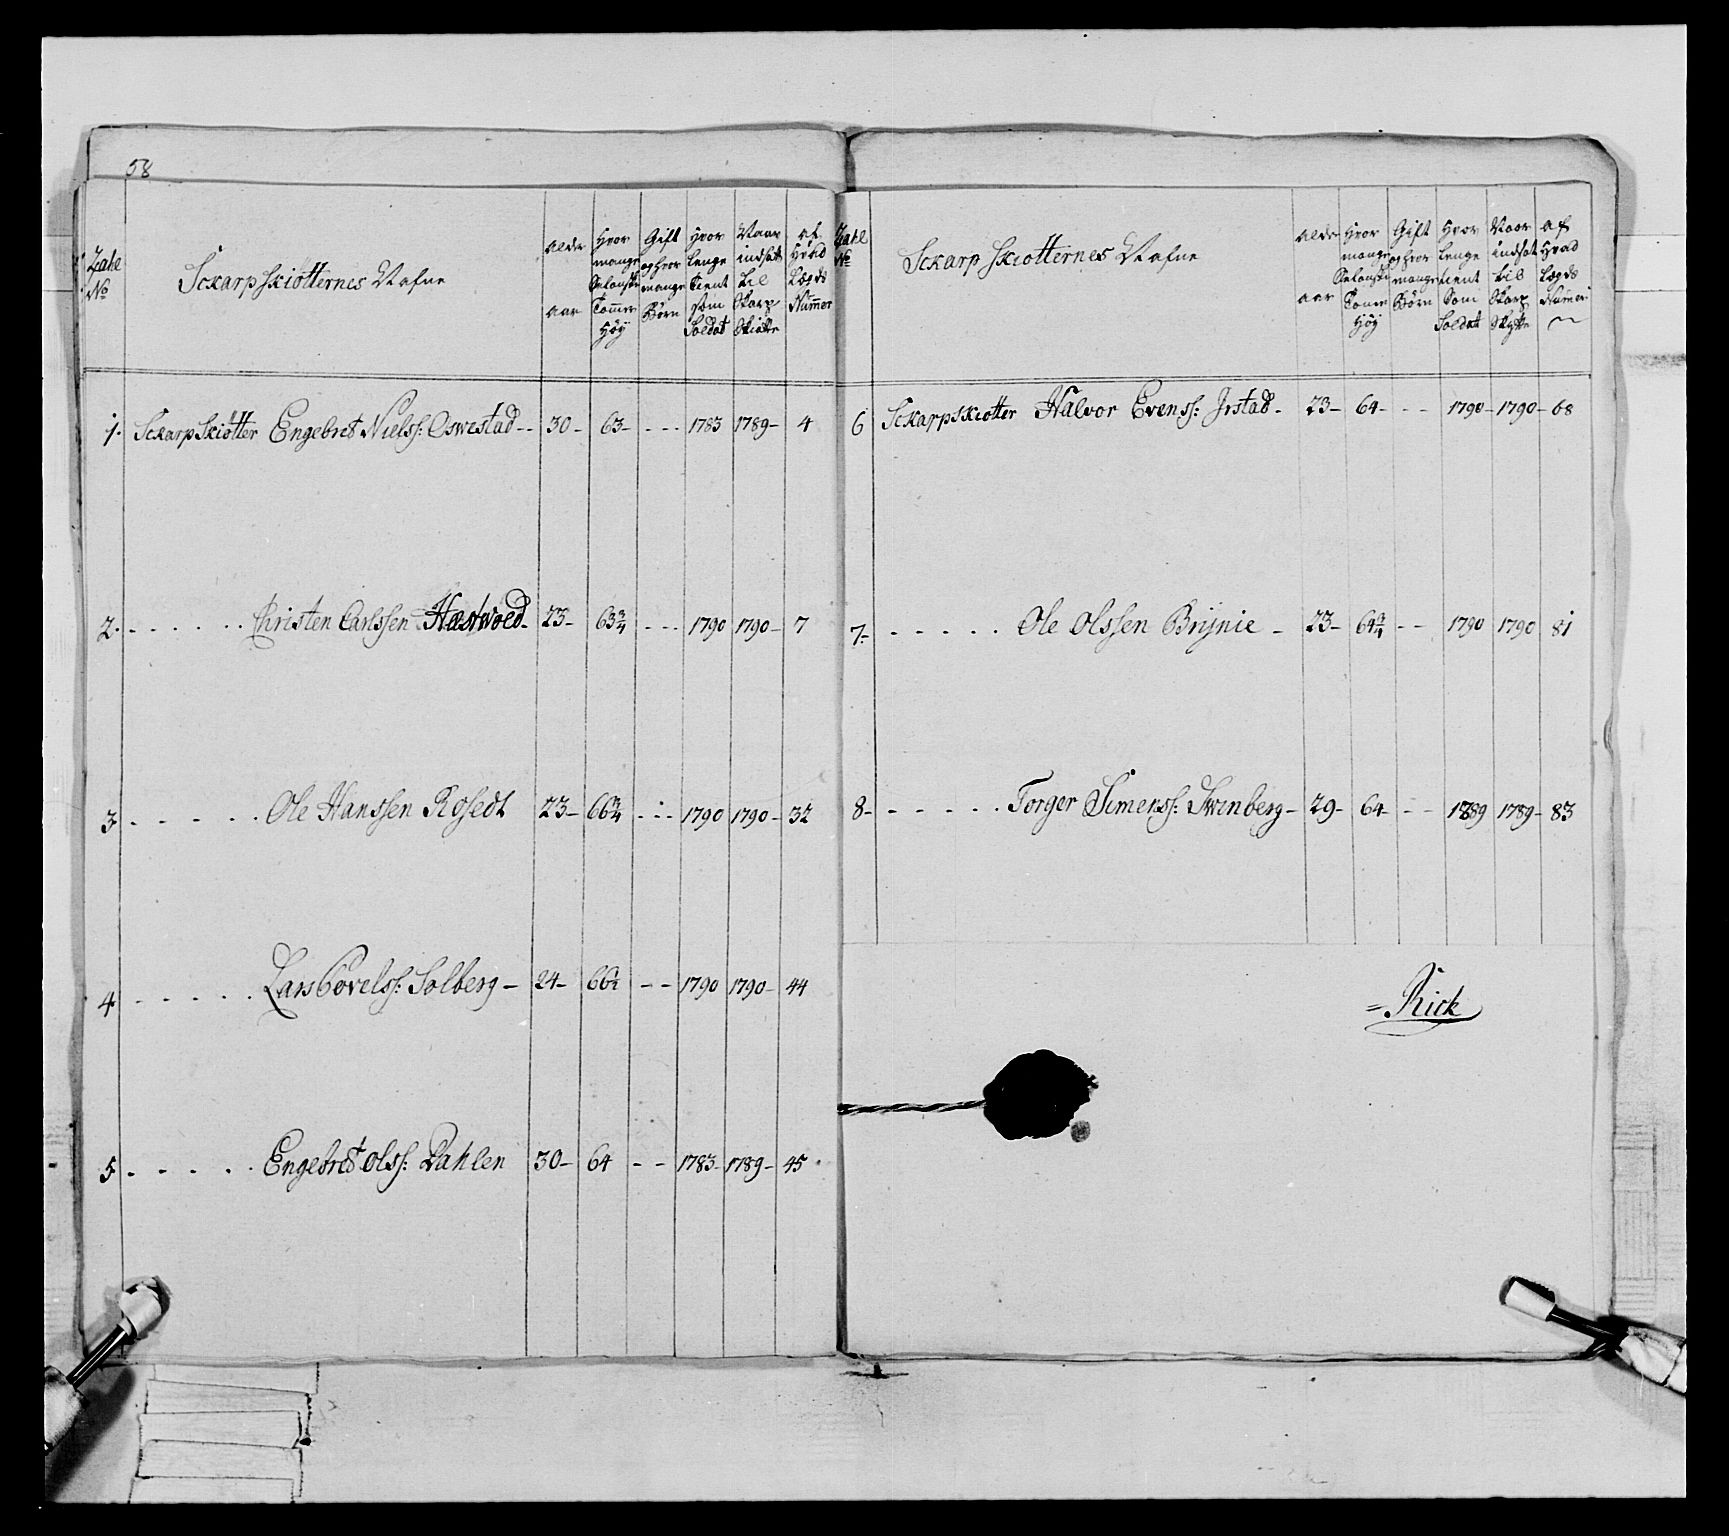 58
Zahl No
Sckarpskiötternes Nafne
Alder aar
Hvor mange Tommer Höÿ
Gift og hvor mange Börn
Hvor Lenge tient som Soldat
Naar indsatt til Skarp Skiötte
af Hvad Lægds Nummer
1. Sckarpskiötter Engebret Nielss: Oswestad - - 30 - 63 - - - - 1783 1789 - 4
2. - - - - - Christen Carlssen Hastwoed - 23 - 63 3/4 - - - 1790 1790 - 7
3 - - - - - Ole Hanssen Rosedt 23 - 66 3/4 - - - 1790 1790 - 32
4 - - - - - Lars Povelss: Solberg - 24 - 66 1/2 - - 1790 1790 - 44
5 - - - - - Engebret Olss: Dahlen 30 - 64 - - 1783 - 1789 - 45
Zahl No
Sckarpskiötternes Nafne
Alder aar
Hvor mange Tomer Höÿ
Gift og hvor mange Börn
Hvor Lenge tient Som Soldatt
Naar indsat til Skarp Skytte
af Hvad Lægds Numer
6 Sckarpskiötter Halvor Evenss: Jrstad - 23 - 64 - - - 1790 - 1790 - 68
7 - - - - - Ole Olssen Brÿnie - 23 - 64 3/4 - - 1790 1790 81
8 - - - - - Torger Simenss: Swenberg - 29 - 64 - - - 1789 1789 - 83
= Rick